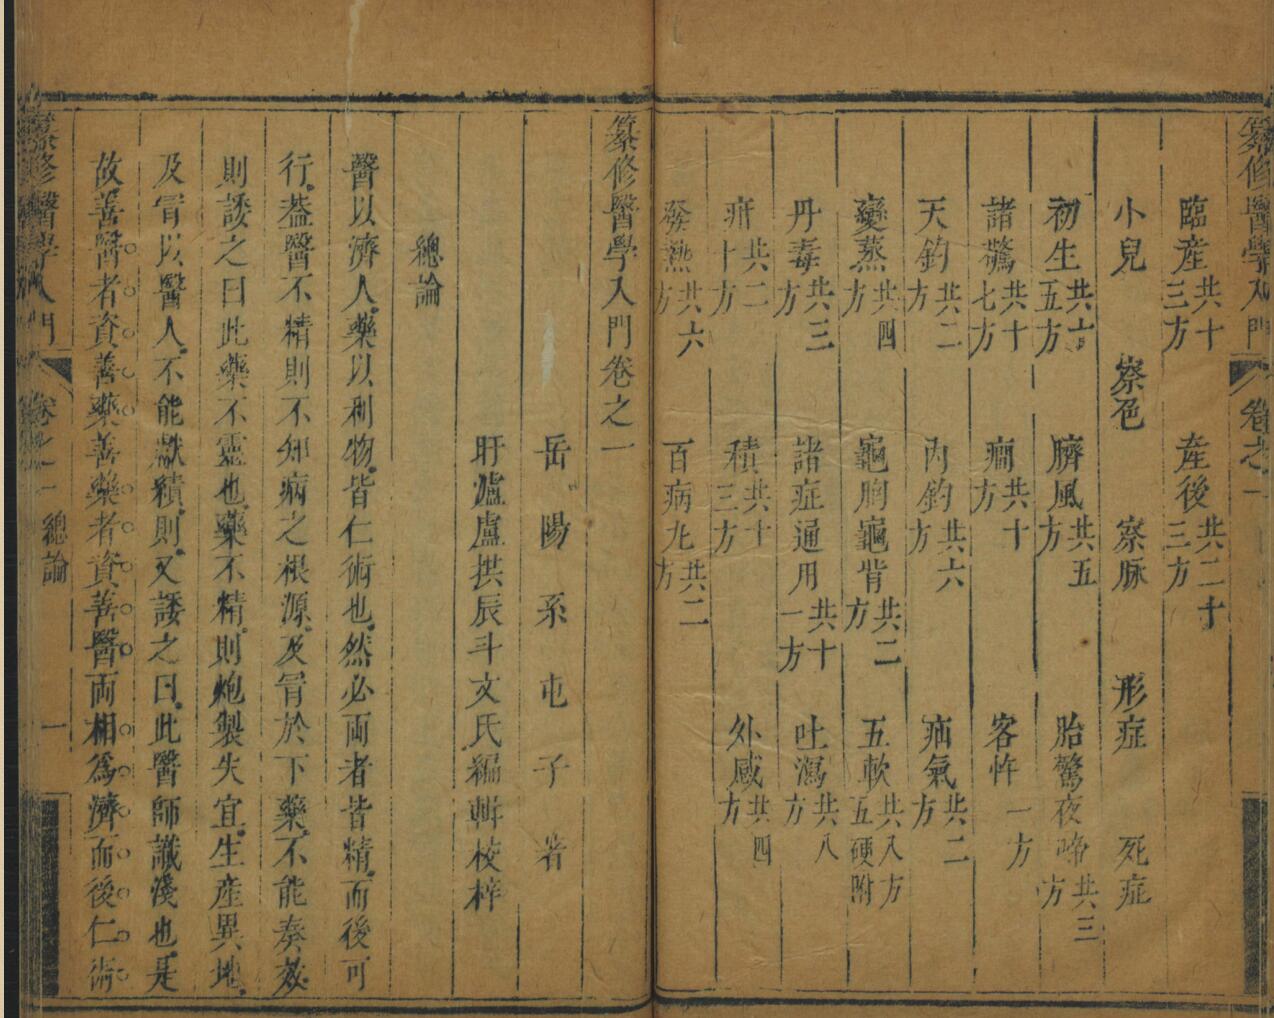 纂修醫學入門 卷之一
臨産共十三方 産後共二十三方
小兒 察色 察脉 形症 死症
初生共六五方 臍風共五方 胎驚夜啼共三方
諸驚共十七方 癎共十方 客忤一方
天釣共二方 内釣共六方 疝氣共二方
變蒸共四方 龜胸龜背共二方 五軟共八方五硬附
丹毒共三方 諸症通用共十一方 吐瀉共八方
疳共二十方 積共十三方 外感共四方
發熱共六方 百病丸共二方
纂修醫學入門卷之一
岳陽系屯子著
盱瀘盧拱辰斗文氏編輯校梓
總論
醫以濟人藥以利物皆仁術也然必兩者皆精而後可
行葢醫不精則不知病之根源及冐於下藥不能奏效
則諉之曰此藥不靈也藥不精則炮製失宜生産異地
及冐以醫人不能獻績則又諉之曰此醫師識淺也是
故善醫者資善藥善藥者資善醫兩相爲濟而後仁術
纂修醫學入門 卷之一 總論 一